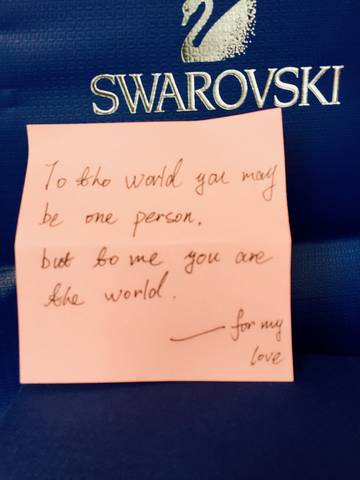 SWAROVSKI
To the world you may
be one person,
but to me you are
the world.
— for my
love